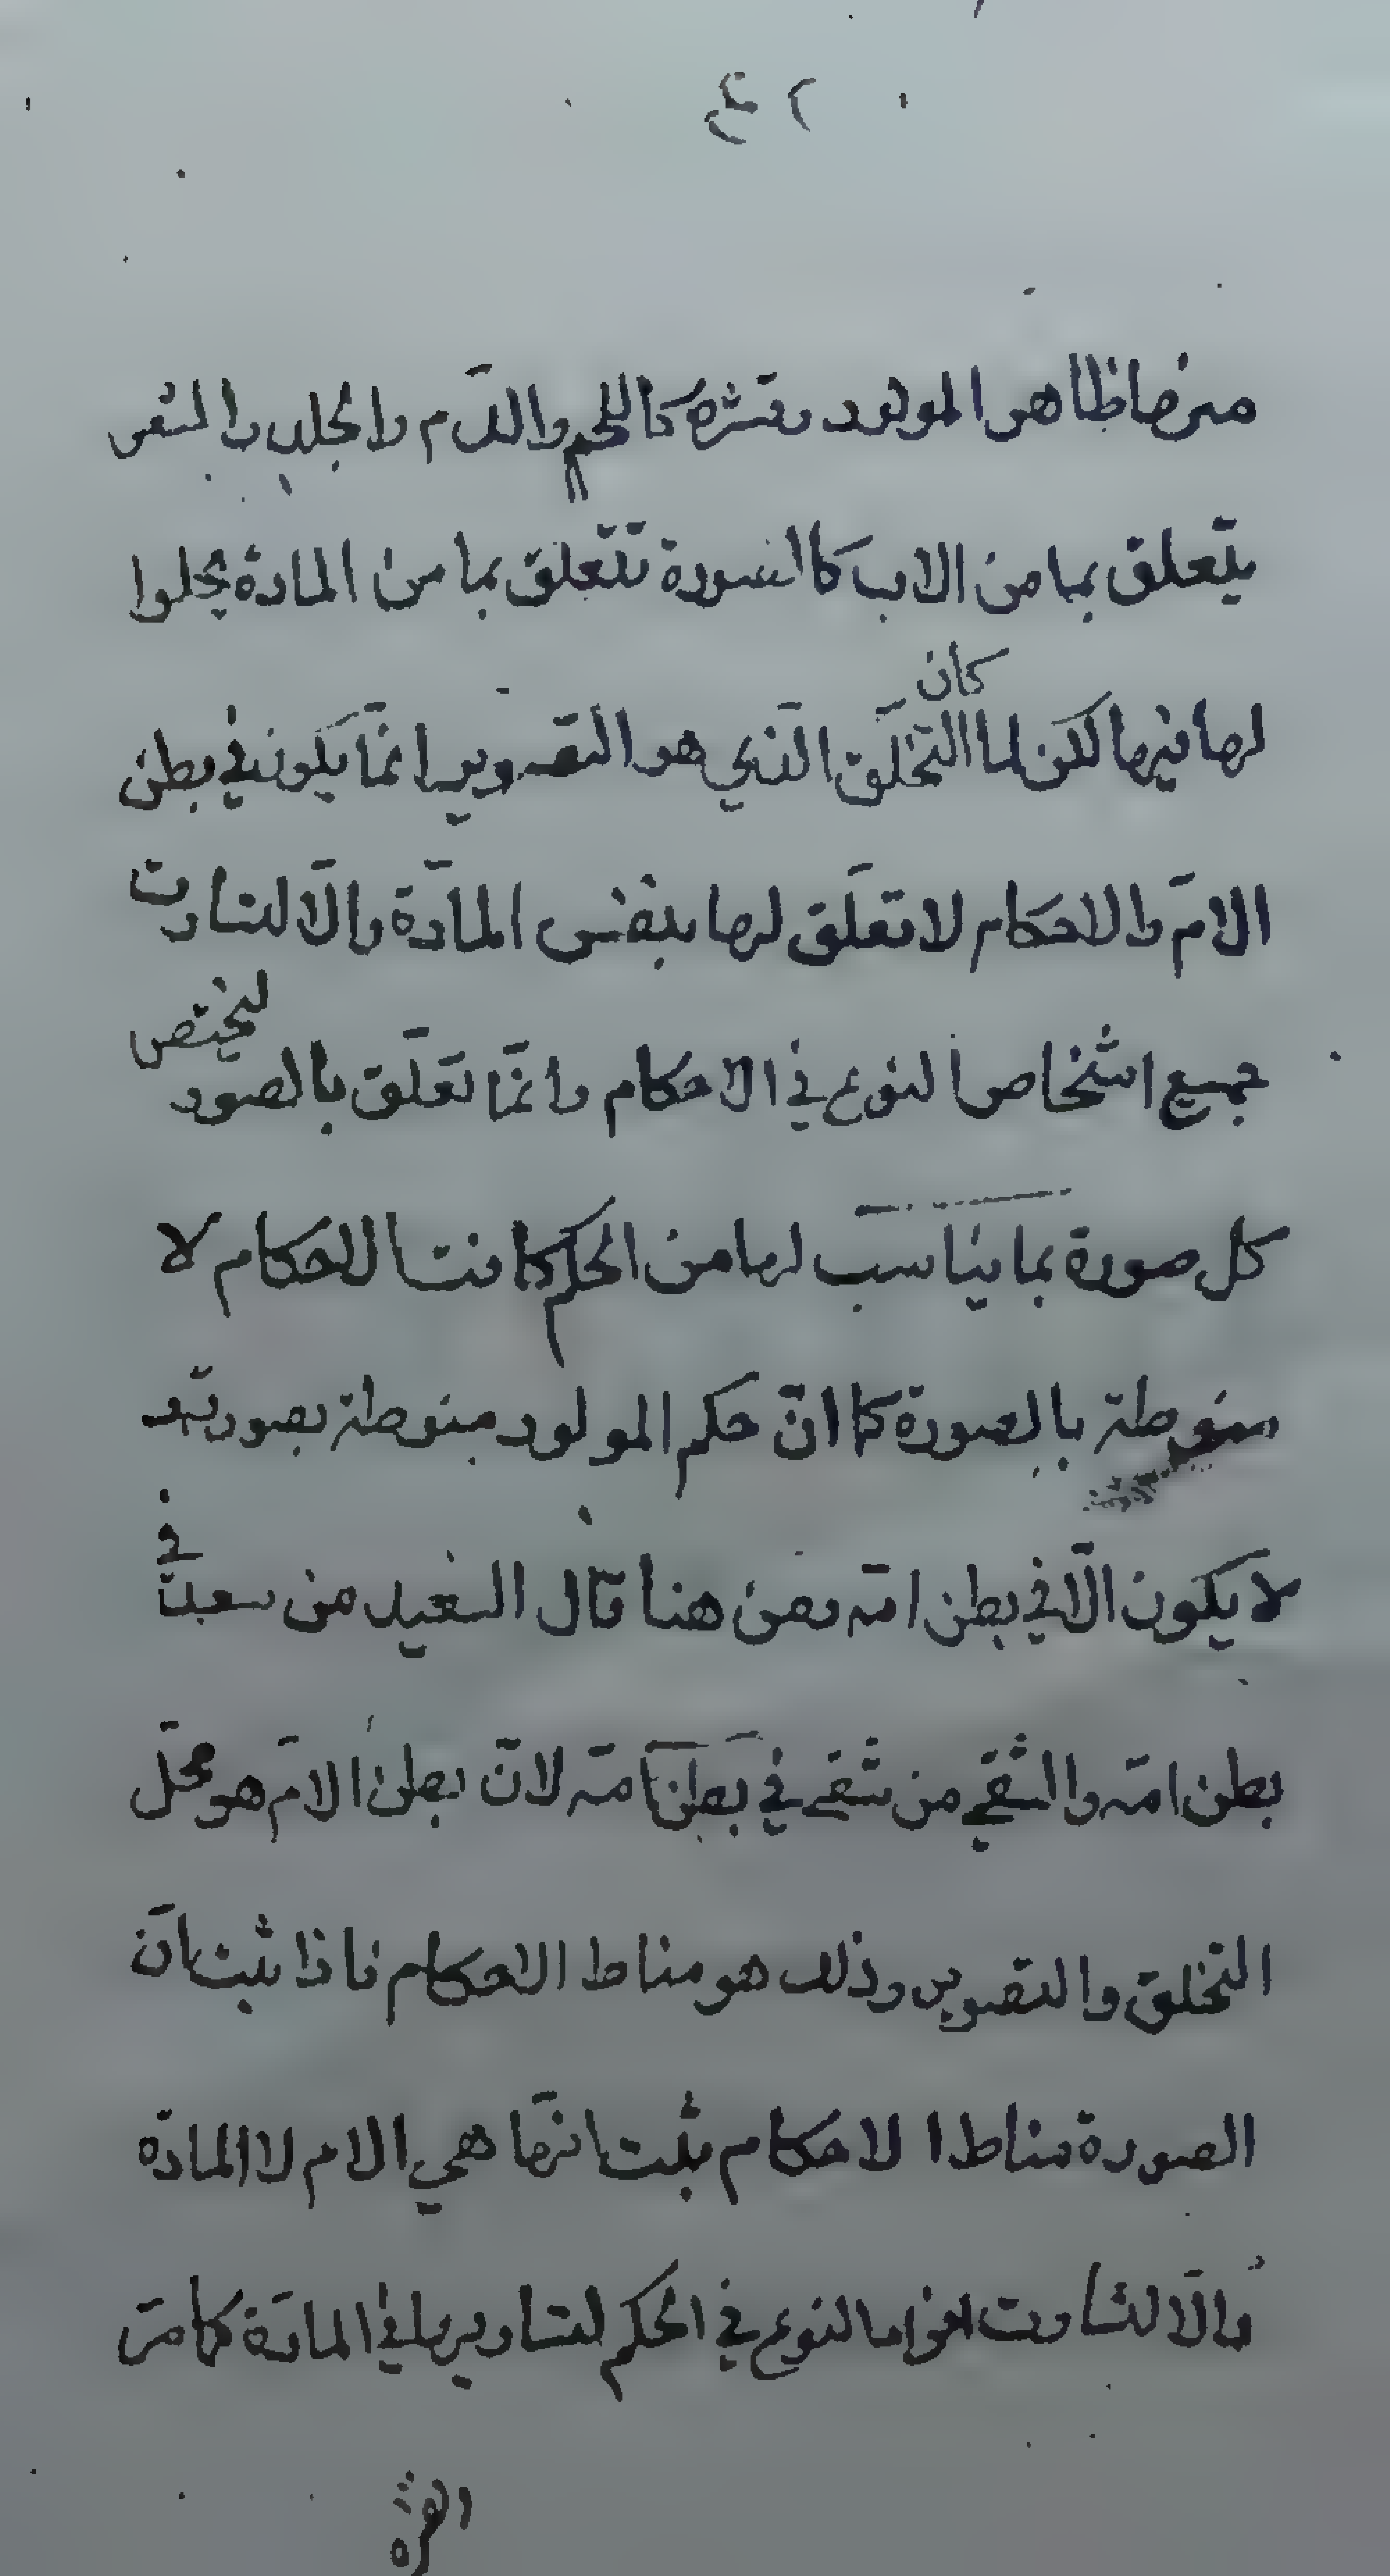 ٢٤
منها ظاهر المولود وقشره كاللحم والدّم والجلد والشعر
يتعلق بما من الاب كالصورة تتعلّق بما من المادة بحلوا
لها فيها لكن لما كان التخلّق الذي هو التصوير انمّا يكون في بطن
الامّ والاحكام لا تعلّق لها بنفس المادّة والّا لتساوت
جميع اشخاص النوع في الاحكام وانمّا تعلّق بالصور ليختص
كل صورة بما يناسب لها من الحكم كانت الاحكام لا
منوطة بالصورة كما انّ حكم المولود منوطة بصورته
لا يكون الّا في بطن امّه ومن هنا قال السعيد من سعد في
بطن امّه والشقي من شقي في بطن امّه لانّ بطن الامّ هو محلّ
التخلق والتصوير وذلك هو مناط الاحكام فاذا ثبت انّ
الصورة مناط الاحكام ثبت انهّا هي الام لا المادة
والّا لتساوت افراد النوع في الحكم لتساويها في المادّة كما مرّ